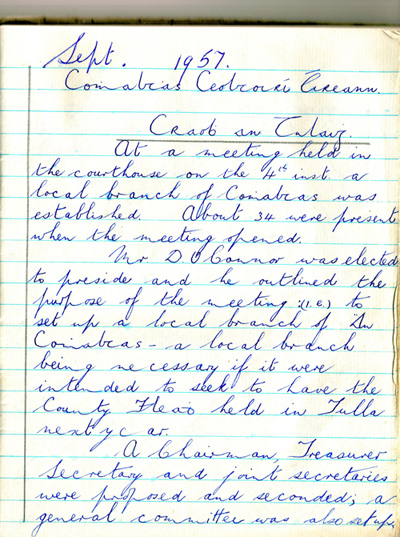 Sept. 1957.
Comalcas Ceolcoirí Éireann.
Craob an Tulaig.
At a meeting held in
the courthouse on the 4th inst. a
local branch of Comalcas was
established. About 34 were present
when the meeting opened.
Mr D O'Connor was elected
to preside and he outlined the
purpose of the meeting :(I.E) to
set up a local branch of An
Comalcas - a local branch
being necessary if it were
intended to seek to have the
County Fleaḋ held in Tulla
next year.
A Chairman, Treasurer
Secretary and joint secretaries
were proposed and seconded; a
general committee was also set up.